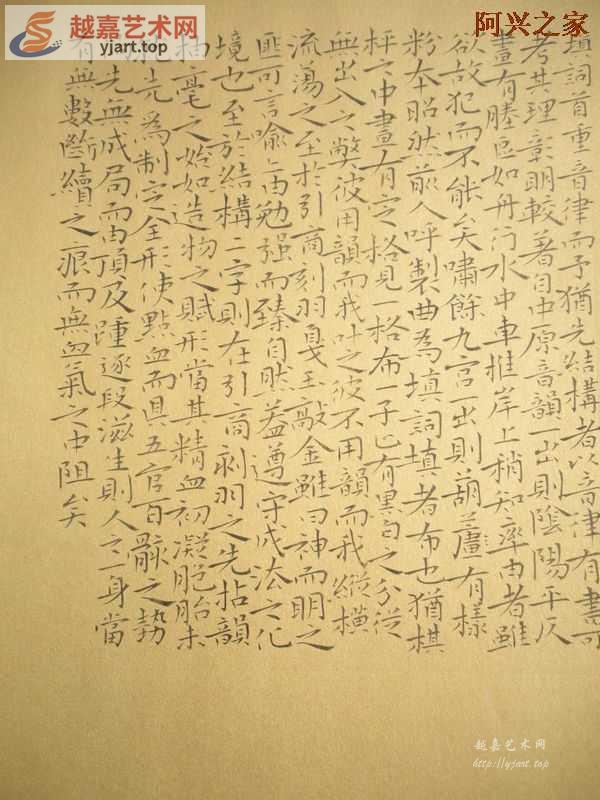 越嘉艺术网
yjart.top
阿兴之家
填詞首重音律而予猶先結構者以音律有書可
考其理彰明較著自中原音韻一出則陰陽平仄
畫有塍區如舟行水中車推岸上稍知率由者雖
欲故犯而不能矣嘯餘九宮一出則葫蘆有樣
粉本昭然前人呼製曲為填詞填者布也猶棋
枰之中畫有定格見一格布一子止有黑白之分從
無出入之弊彼用韻而我叶之彼不用韻而我縱橫
流蕩之至於引商刻羽戛玉敲金雖曰神而明之
匪可言喻亦由勉强而臻自然蓋遵守成法之化
境也至於結構二字則在引商刻羽之先拈韻
抽毫之始如造物之賦形當其精血初凝胞胎未
先為制定全形使點血而具五官百骸之勢
先無成局而由頂及踵逐段滋生則人之一身當
有無數斷續之痕而無血氣之中阻矣
越嘉艺术网
http://yjart.top